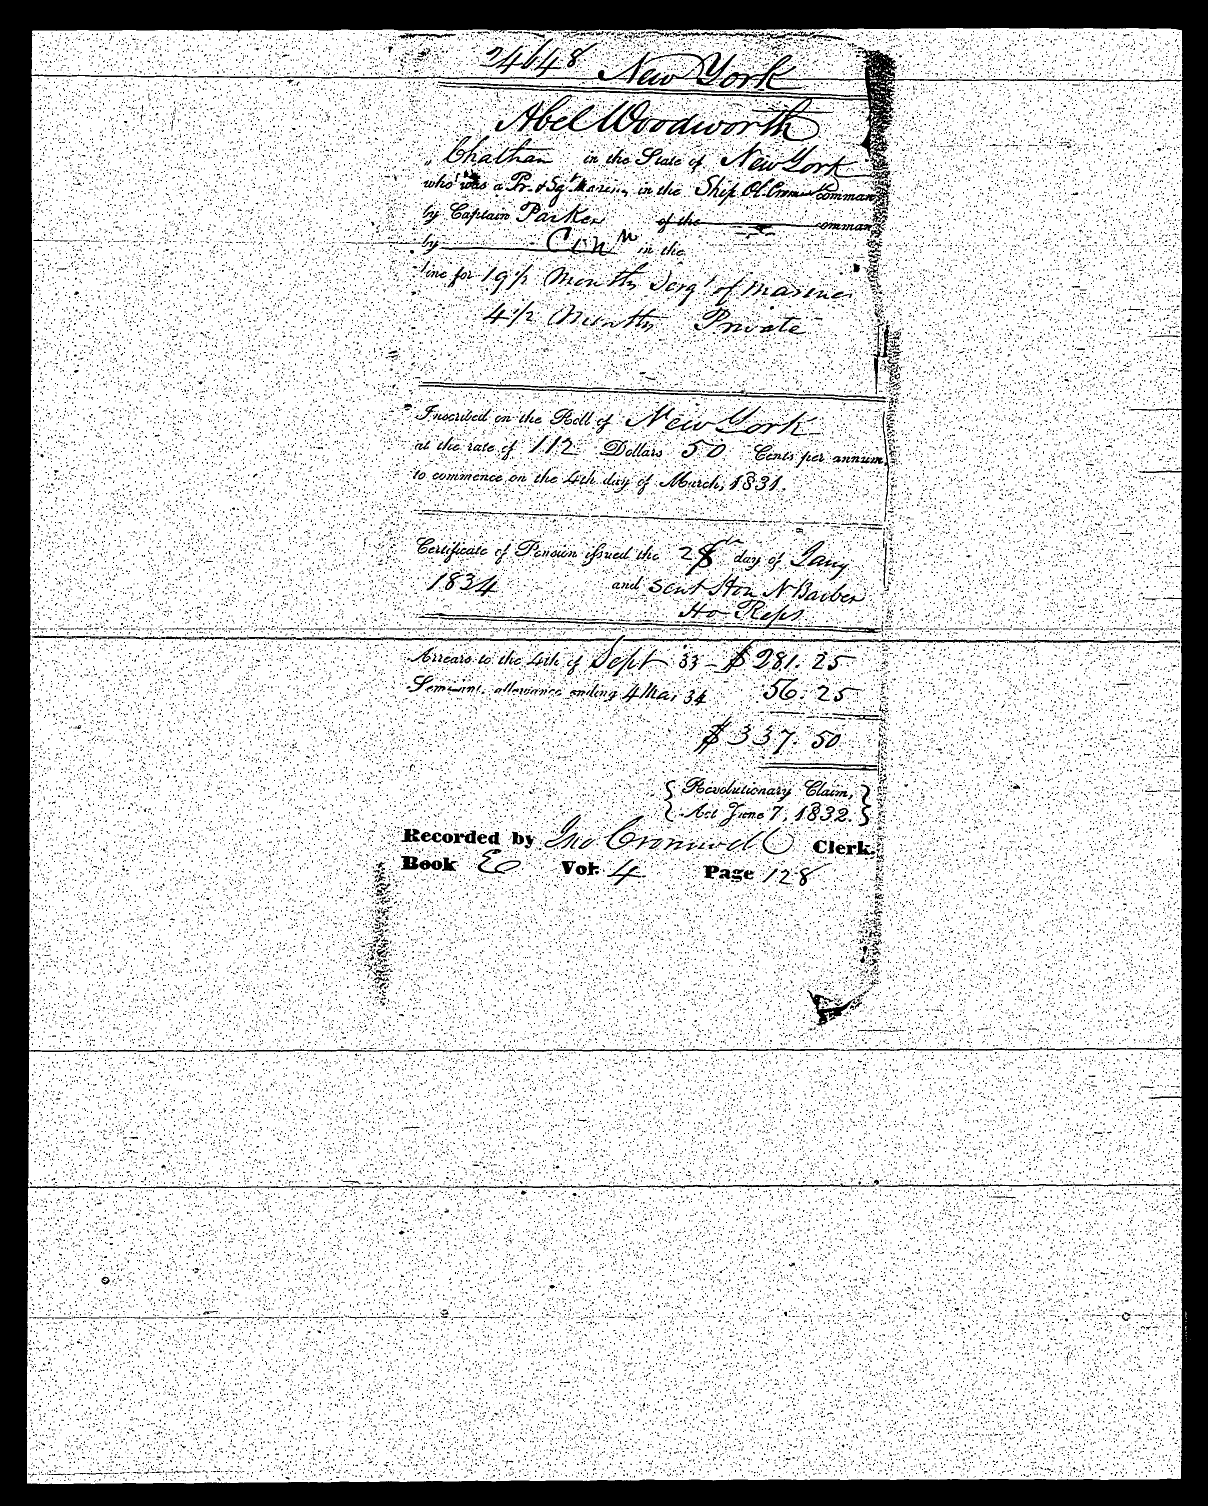 24648 New York
Abel Woodworth
Chatham in the State of New York
who was a Pr. & Sgt Marines in the Ship Ol. Cromwell comman
by Captain Parker of the comman
by Conn in the
line for 19 1/2 Months Sergt of Marines
4 1/2 Months Private
Inscribed on the Roll of New York
at the rate of 112 Dollars 50 Cents per annum,
to commence on the 4th day of March, 1831.
Certificate of Pension issued the 28th day of Jany
1834 and sent Hon N Barber
Ho Reps
Arrears to the 4th of Sept 33 - $ 281.25
Semi-anl. allowance ending 4 Mar 34 56.25
$ 337.50
{ Revolutionary Claim, }
{ Act June 7, 1832. }
Recorded by Jno Cromwell Clerk.
Book E Vol. 4 Page 128